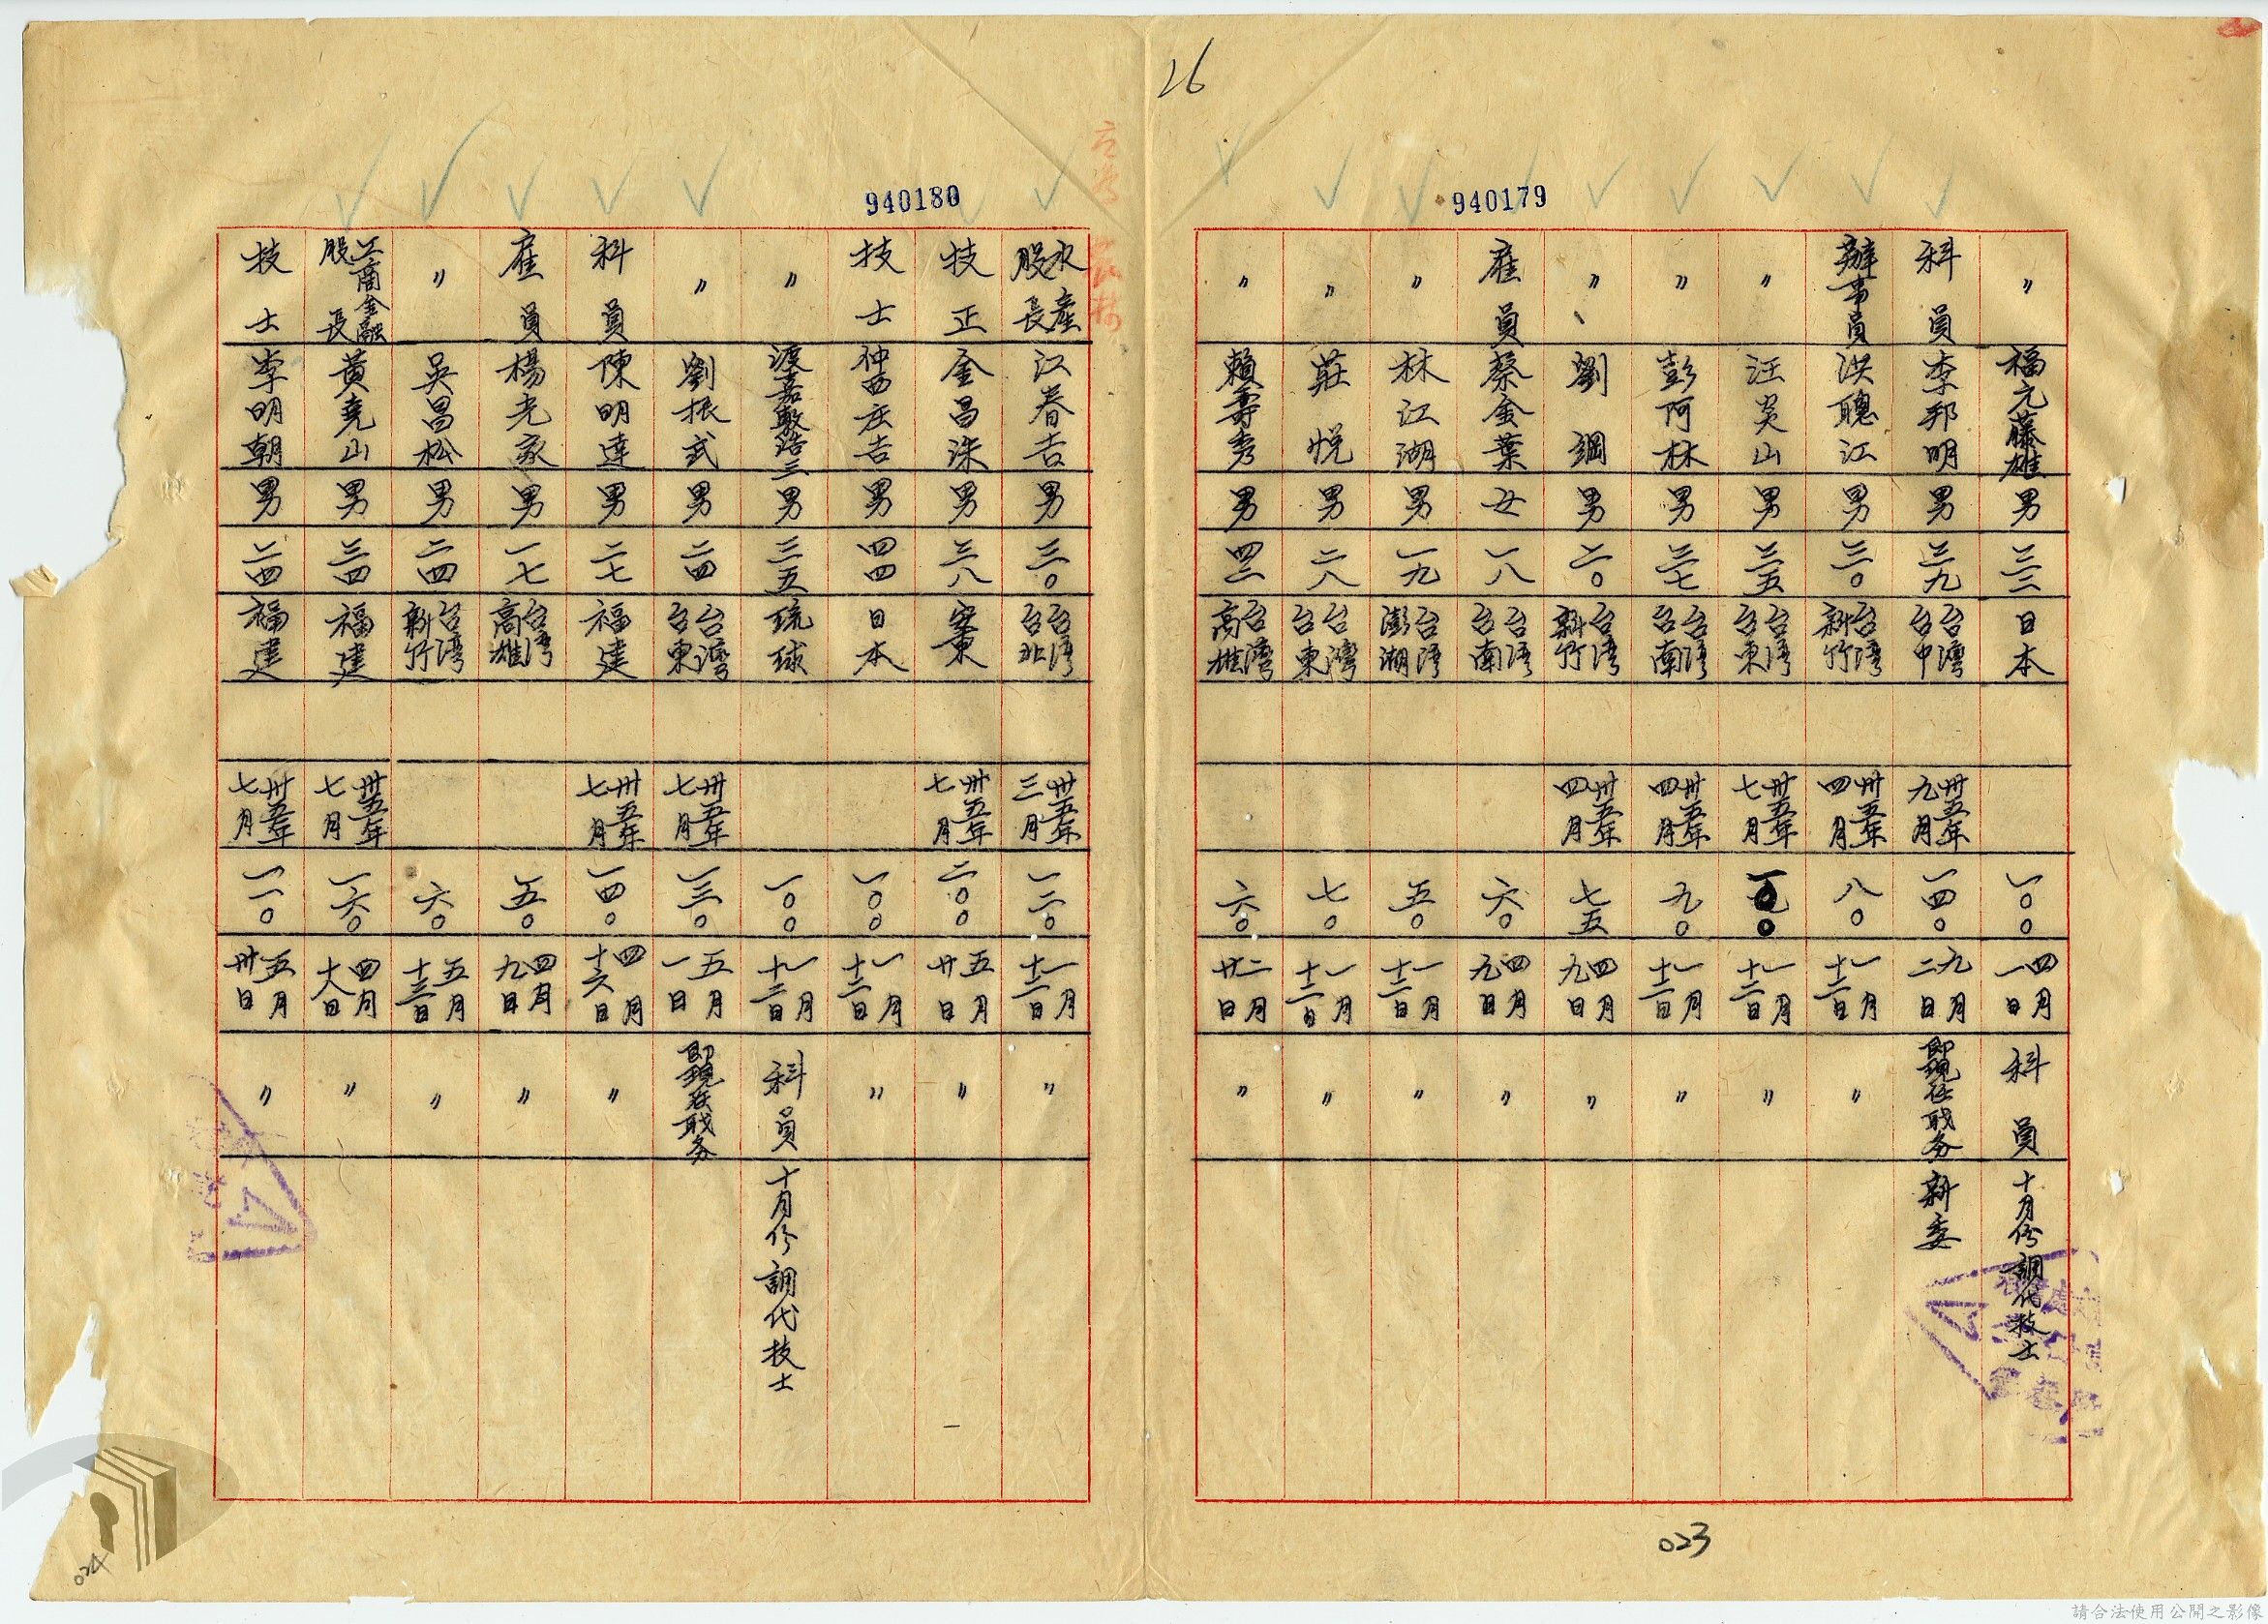 26
940179
〃 福元藤雄 男 三二 日本 一〇〇 四月一日 科員 十月份調代技士
科員 李邦明 男 三九 台灣台中 卅五年九月 一四〇 九月二日 即現任職务 新委
辦事員 洪聰江 男 三〇 台湾新竹 卅五年四月 八〇 一月十二日 〃
〃 汪炎山 男 三五 台湾台東 卅五年七月 一〇〇 一月十二日 〃
〃 彭阿林 男 三七 台湾台南 卅五年四月 九〇 一月十二日 〃
〃 劉鋼 男 二〇 台湾新竹 卅五年四月 七五 四月九日 〃
雇員 蔡金葉 女 一八 台湾台南 六〇 四月九日 〃
〃 林江湖 男 一九 台湾澎湖 五〇 一月十二日 〃
〃 莊悅 男 二八 台灣台東 七〇 一月十二日 〃
〃 賴壽秀 男 四二 台灣高雄 六〇 二月廿日 〃
023
940180
水產股長 江春吉 男 三〇 台湾台北 卅五年三月 一二〇 一月十二日 〃
技正 金昌洙 男 三八 安東 卅五年七月 二〇〇 五月廿日 〃
技士 仲西庄吉 男 四四 日本 一〇〇 一月十二日 〃
〃 渡嘉敷浩三 男 三五 琉球 一〇〇 一月十二日 科員 十月份調代技士
〃 劉振武 男 二四 台灣台東 卅五年七月 一三〇 五月一日 即現在職务
科員 陳明達 男 二七 福建 卅五年七月 一四〇 四月十六日 〃
雇員 楊光家 男 一七 台湾高雄 五〇 四月九日 〃
〃 吳昌松 男 二四 台湾新竹 六〇 五月十三日 〃
工商金融股長 黃堯山 男 三四 福建 卅五年七月 一六〇 四月十八日 〃
技士 李明朝 男 二四 福建 卅五年七月 一一〇 五月卅日 〃
024
請合法使用公開之影像